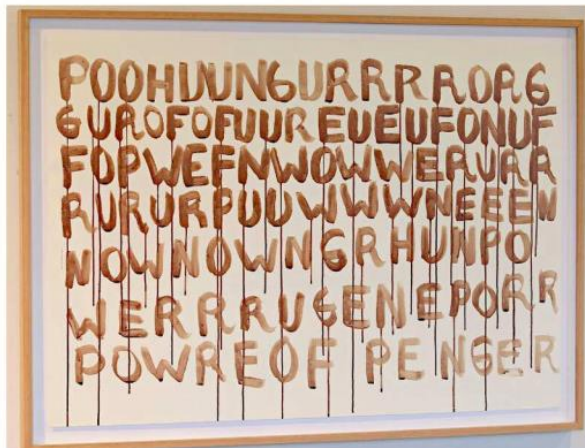 POOHUUNGURRRROAG
GUROFOFUUREUEUFONUF
FOPWEFNWOWWERURR
RURURPUUWWWNEEEN
NOWNOWNGRHUNPO
WERRRUGENEPORR
POWREOF PENGER